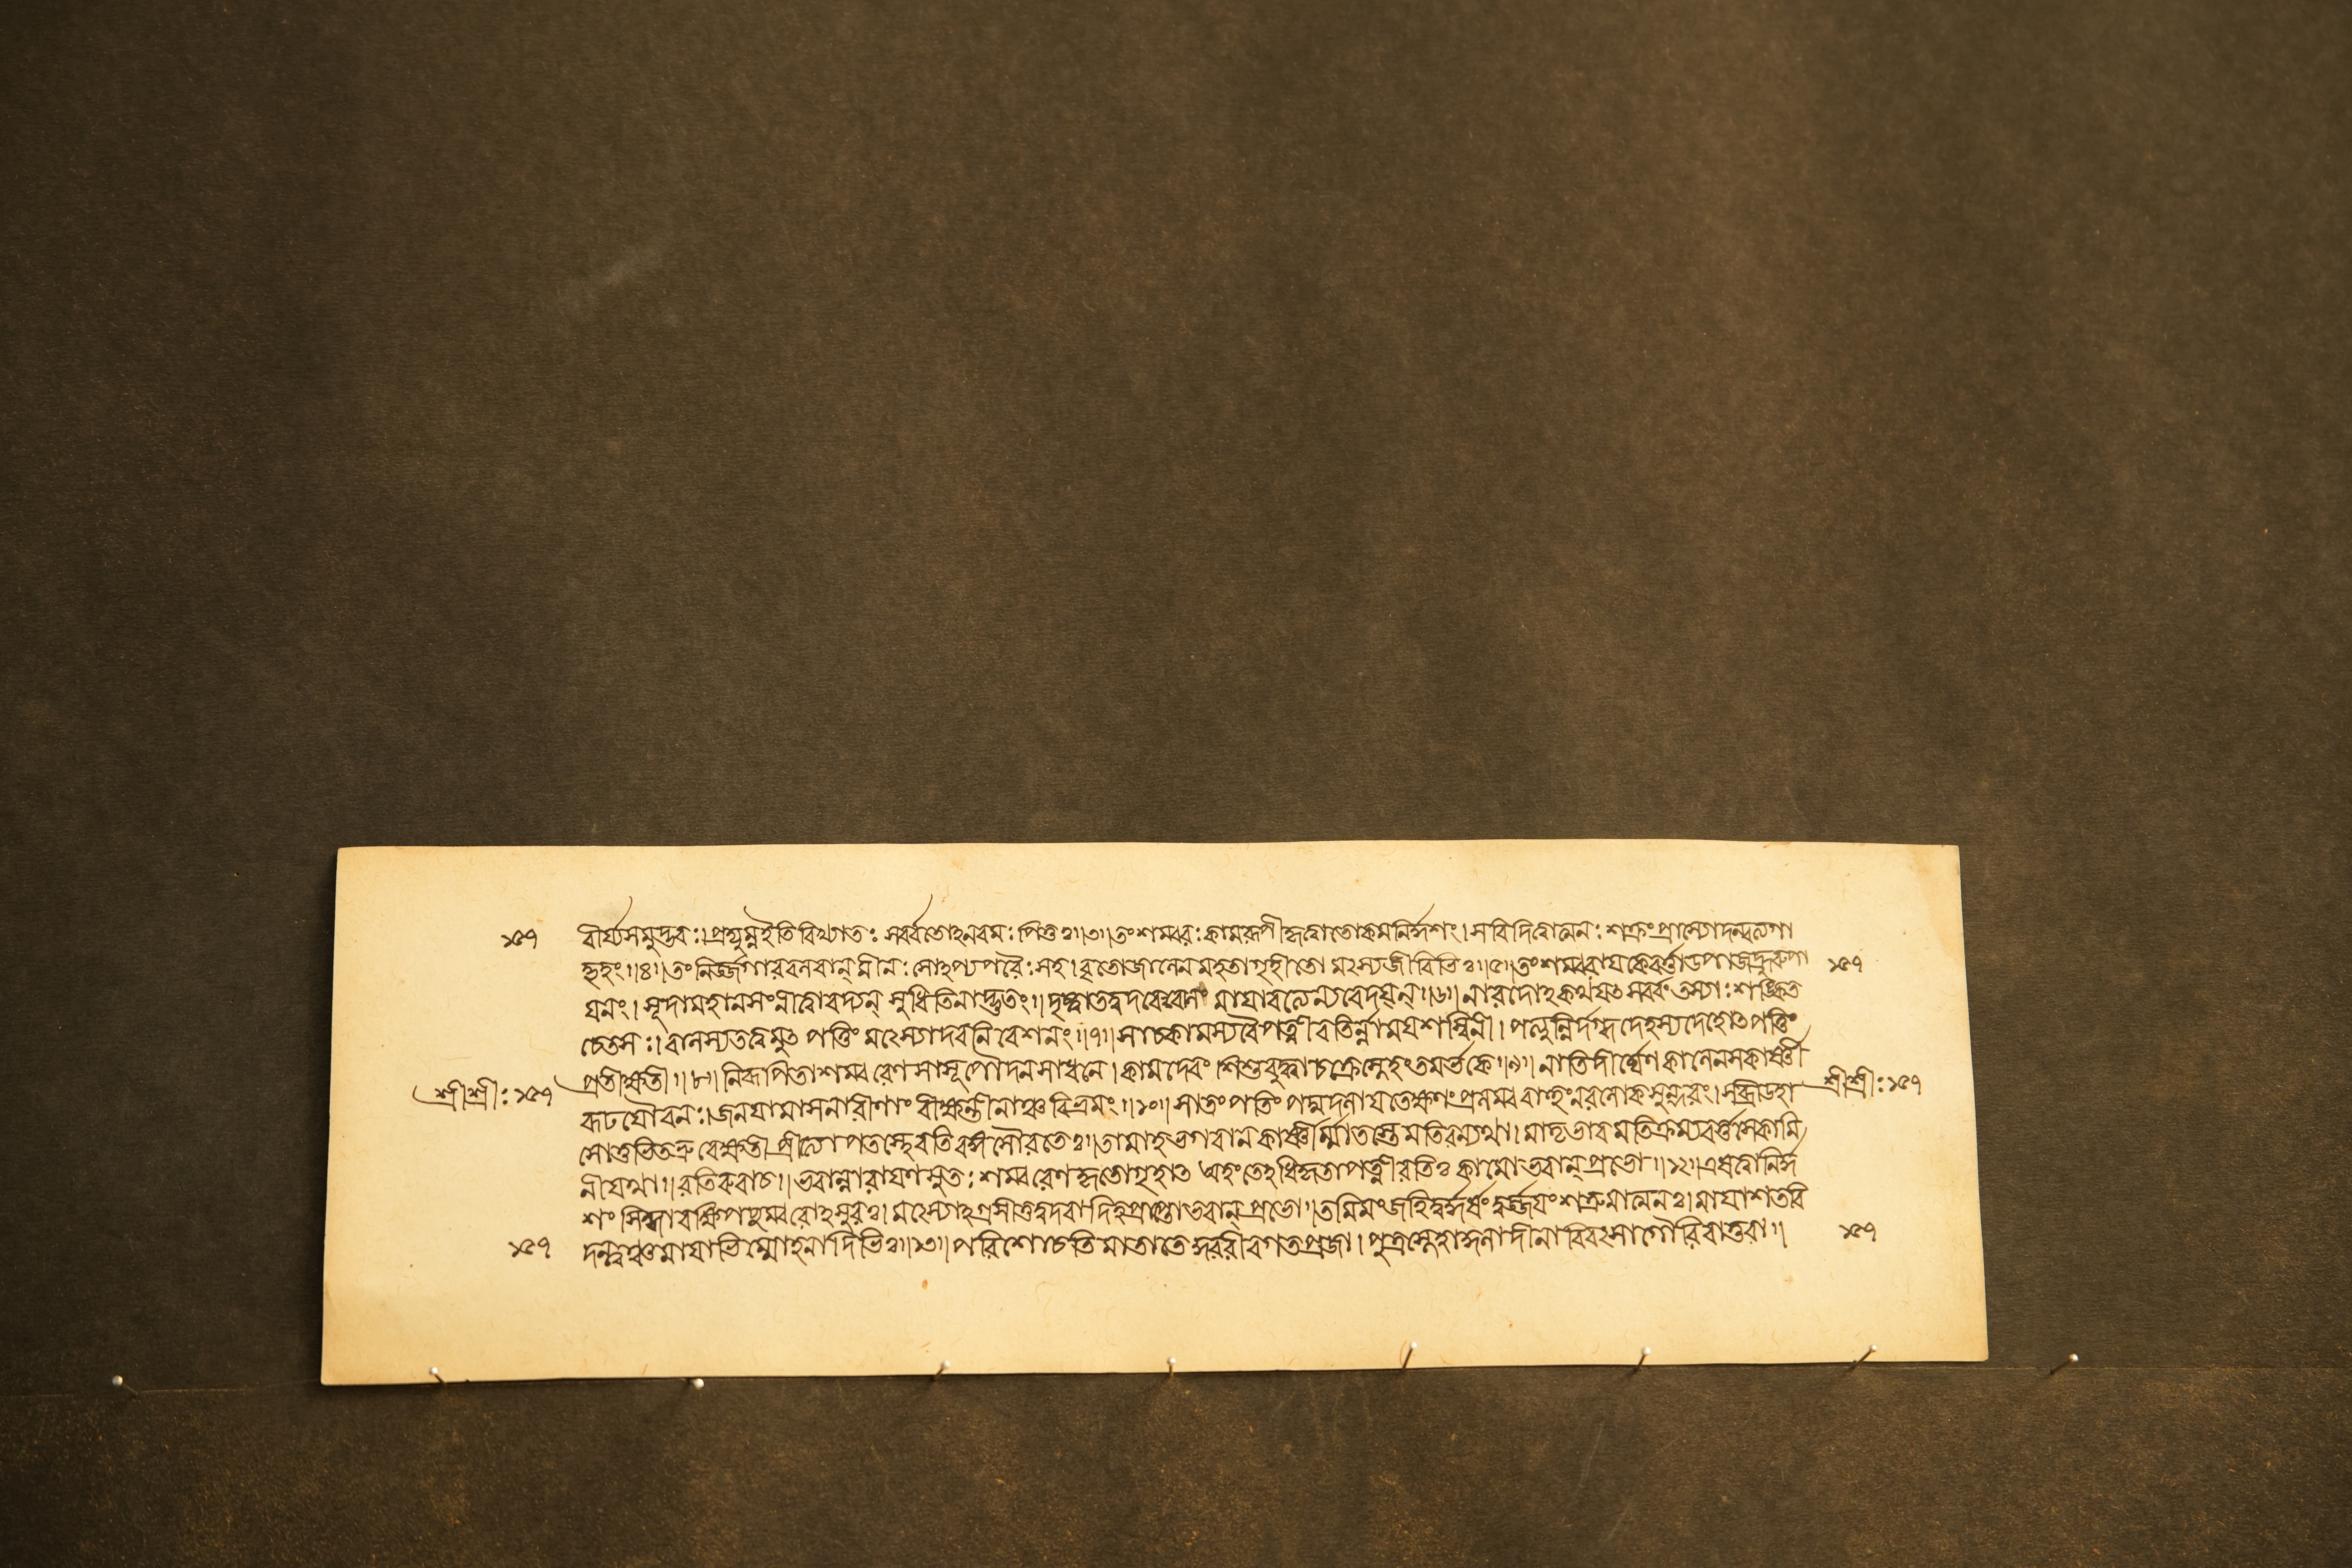 ১৫৭ বীর্য্যসমুদ্ভবঃ। প্রদ্যুম্ন ইতি বিখ্যাতঃ সর্ব্বতোঽনবমঃ পিতুঃ॥৩॥ তং শম্বরঃ কামরূপী হৃত্বা তোকমনির্দ্দশং। স বিদিত্বাত্মনঃ শত্রুং প্রাস্যোদন্বত্যগা
দ্গৃহং॥৪॥ তং নির্জ্জগার বলবান্ মীনঃ সোঽপ্যপরৈঃ সহ। বৃতো জালেন মহতা গৃহীতো মৎস্যজীবিভিঃ॥৫॥ তং শম্বরায় কৈবর্ত্তা উপাজহ্রুরুপা ১৫৭
য়নং। সূদা মহানসং নীত্বাবদ্যন্ সুধিতিনাদ্ভুতং॥ দৃষ্ট্বা তদুদরে বালং মায়াবত্যৈ ন্যবেদয়ন্॥৬॥ নারদোঽকথয়ৎ সর্ব্বং তস্যাঃ শঙ্কিত
চেতসঃ। বালস্য তত্ত্বমুৎপত্তিং মৎস্যোদরনিবেশনং॥৭॥ সা চ কামস্য বৈ পত্নী রতির্ন্নাম যশস্বিনী। পত্যুর্নির্দগ্ধদেহস্য দেহোৎপত্তিং
শ্রীশ্রীঃ ১৫৭ প্রতীক্ষতী॥৮॥ নিরূপিতা শম্বরেণ সা সূপৌদনসাধনে। কামদেবং শিশুং বুদ্ধ্বা চক্রে স্নেহং তমর্ভকে॥৯॥ নাতিদীর্ঘেণ কালেন স কার্ষ্ণী শ্রীশ্রীঃ ১৫৭
রূঢযৌবনঃ। জনয়ামাস নারীণাং বীক্ষন্তীনাঞ্চ বিভ্রমং॥১০॥ সা তং পতিং পদ্মদলায়তেক্ষণং প্রলম্ববাহুং নরলোকসুন্দরং। সব্রীডহা
সোত্তভিতভ্রুবেক্ষতী প্রীত্যোপতস্থে রতিরঙ্গ সৌরতৈঃ॥ তামাহ ভগবান কার্ষ্ণীর্ম্মাতস্তে মতিরন্যথা। মাতৃভাবমতিক্রম্য বর্ত্তসে কামি
নী যথা॥ রতিরুবাচ॥ ভবান্নারায়ণসুতঃ শম্বরেণ হৃতো গৃহাৎ অহং তেঽধিকৃতা পত্নী রতিঃ কামো ভবান্ প্রভো॥১২॥ এষ ত্বানির্দ্দ
শং সিন্ধাবক্ষিপচ্ছম্বরোঽসুরঃ। মৎস্যোঽগ্রসীত্তদুদরাদিহ প্রাপ্তো ভবান্ প্রভো॥ তমিমং জহি দুর্দ্ধর্ষং দুর্জ্জয়ং শত্রুমাত্মনঃ। মায়াশতবি
১৫৭ দন্ত্বঞ্চ মায়াভির্ম্মোহনাদিভিঃ॥১৩॥ পরিশোচতি মাতা তে কুররীব গতপ্রজা। পুত্রস্নেহাকুলা দীনা বিবৎসা গৌরিবাতুরা॥ ১৫৭